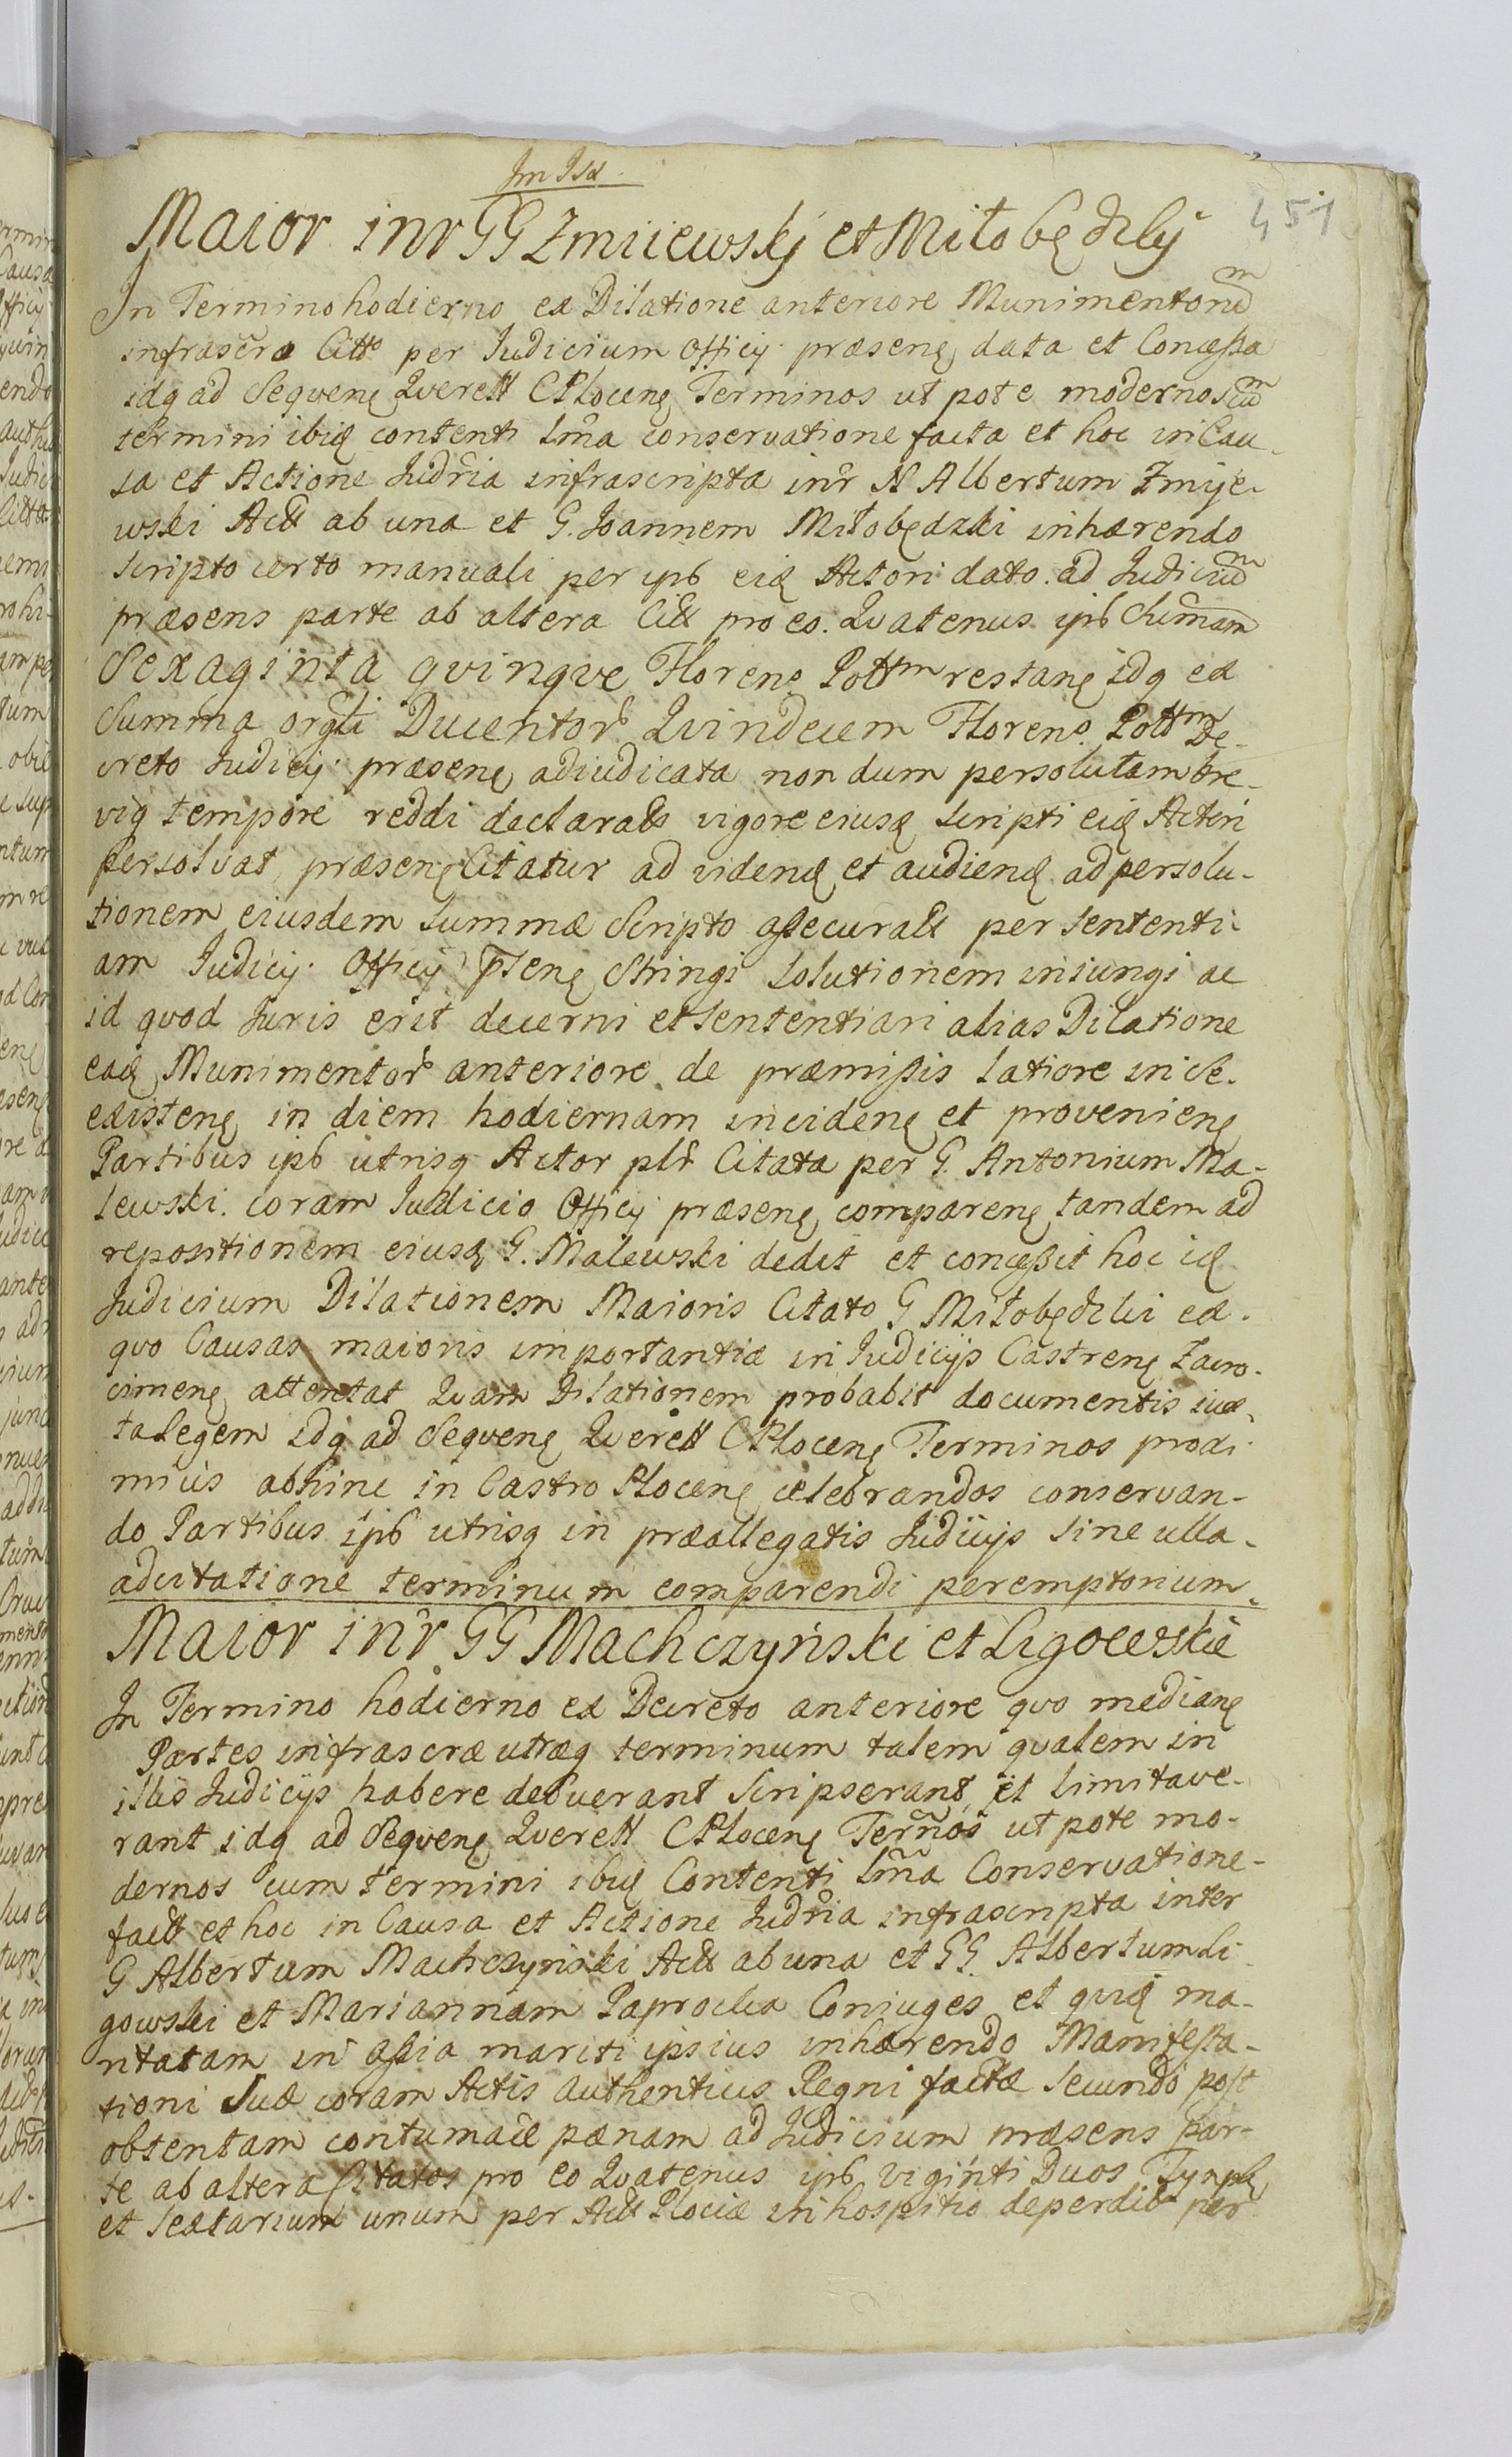 451
Maior inr GG Zmiiewskj et Miłobędzkj
In Termino hodierno ex Dilatione anteriore Munimentorum
infrascra Citto per Judicium Officy præsenę data et Concessa
idq ad Seqvenę Qverell CPlocenę Terminos ut pote modernos cum
termini ibię contenti lma conservatione facta et hoc in Cau-
sa et Actione Judria infrascripta inr N Albertum Zmije-
wski Actt ab una et G. Joannem Miłobędzki inhærendo
Scripto certo manuali per ipb eię Actori dato ad Judicium
præsens parte ab altera Citt pro eo. Qvatenus ipb Summam
Sexaginta qvinqve Florenę Pottm restanę idq ex
Summa orgli Ducentor Qvindecem Florenę Pottm De-
creto Judicy præsenę adiudicata non dum persolutam bre-
vią tempore reddi declarats vigore eiusę Scripti eię Actori
persolvat, præsenę Citatur ad videnę et audienę ad persolu-
tionem eiusdem summæ Scripto assecuratt per sententi-
am Judicy Officy pTenę Stringi solutionem iniungi ac
id qvod Juris erit decerni et sententiari alias Dilatione
eaę Munimentor anteriore de præmissis latiore in se
existenę in diem hodiernam incidenę et provenienę
Partibus ipb utrisq Actor pltr Citata per G. Antonium Ma-
lewski coram Judicio Officy præsenę comparenę tandem ad
repositionem eiusę G. Malewski dedit et concessit hoc ię
Judicium Dilationem Maioris Citato G Miłobędzki ex
qvo Causas maioris importantiæ in Judicijs Castrenę Zacro-
cimenę attentat Qvam Dilationem probabit documentis iux-
ta Legem idq ad Seqvenę Qverell CPlocenę Terminos proxi-
mius abhinc in Castro Plocenę celebrandos conservan-
do Partibus ipb utrisq in præallegatis Judicijs sine ulla
adcitatione terminum comparendi peremptorium
Maior inr GG Machczyński et Ligowskie
In Termino hodierno ex Decreto anteriore qvo medianę
Partes infrascræ utræq terminum talem qvalem in
illis Judicijs habere debuerant Scripserant, et limitave-
rant idq ad Seqvenę Qverell CPlocenę Termos ut pote mo-
dernos cum termini ibię Contenti lma Conservatione
factt et hoc in Causa et Actione Judria infrascripta inter
G Albertum Machczyński Actt ab una et GG. Albertum Li-
gowski et Mariannam Paprocka Coniuges et qvię ma-
ritatam in assia mariti ipsius inhærendo Manifesta-
tioni Suæ coram Actis Authenticis Regni factæ Secundo post
obtentam contumaciæ pænam ad Judicium præsens par-
te ab altera Citatos pro eo Qvatenus ipb viginti Duos Tynph
et Sextarium unum per Actt Plociæ in hospitio deperdit per